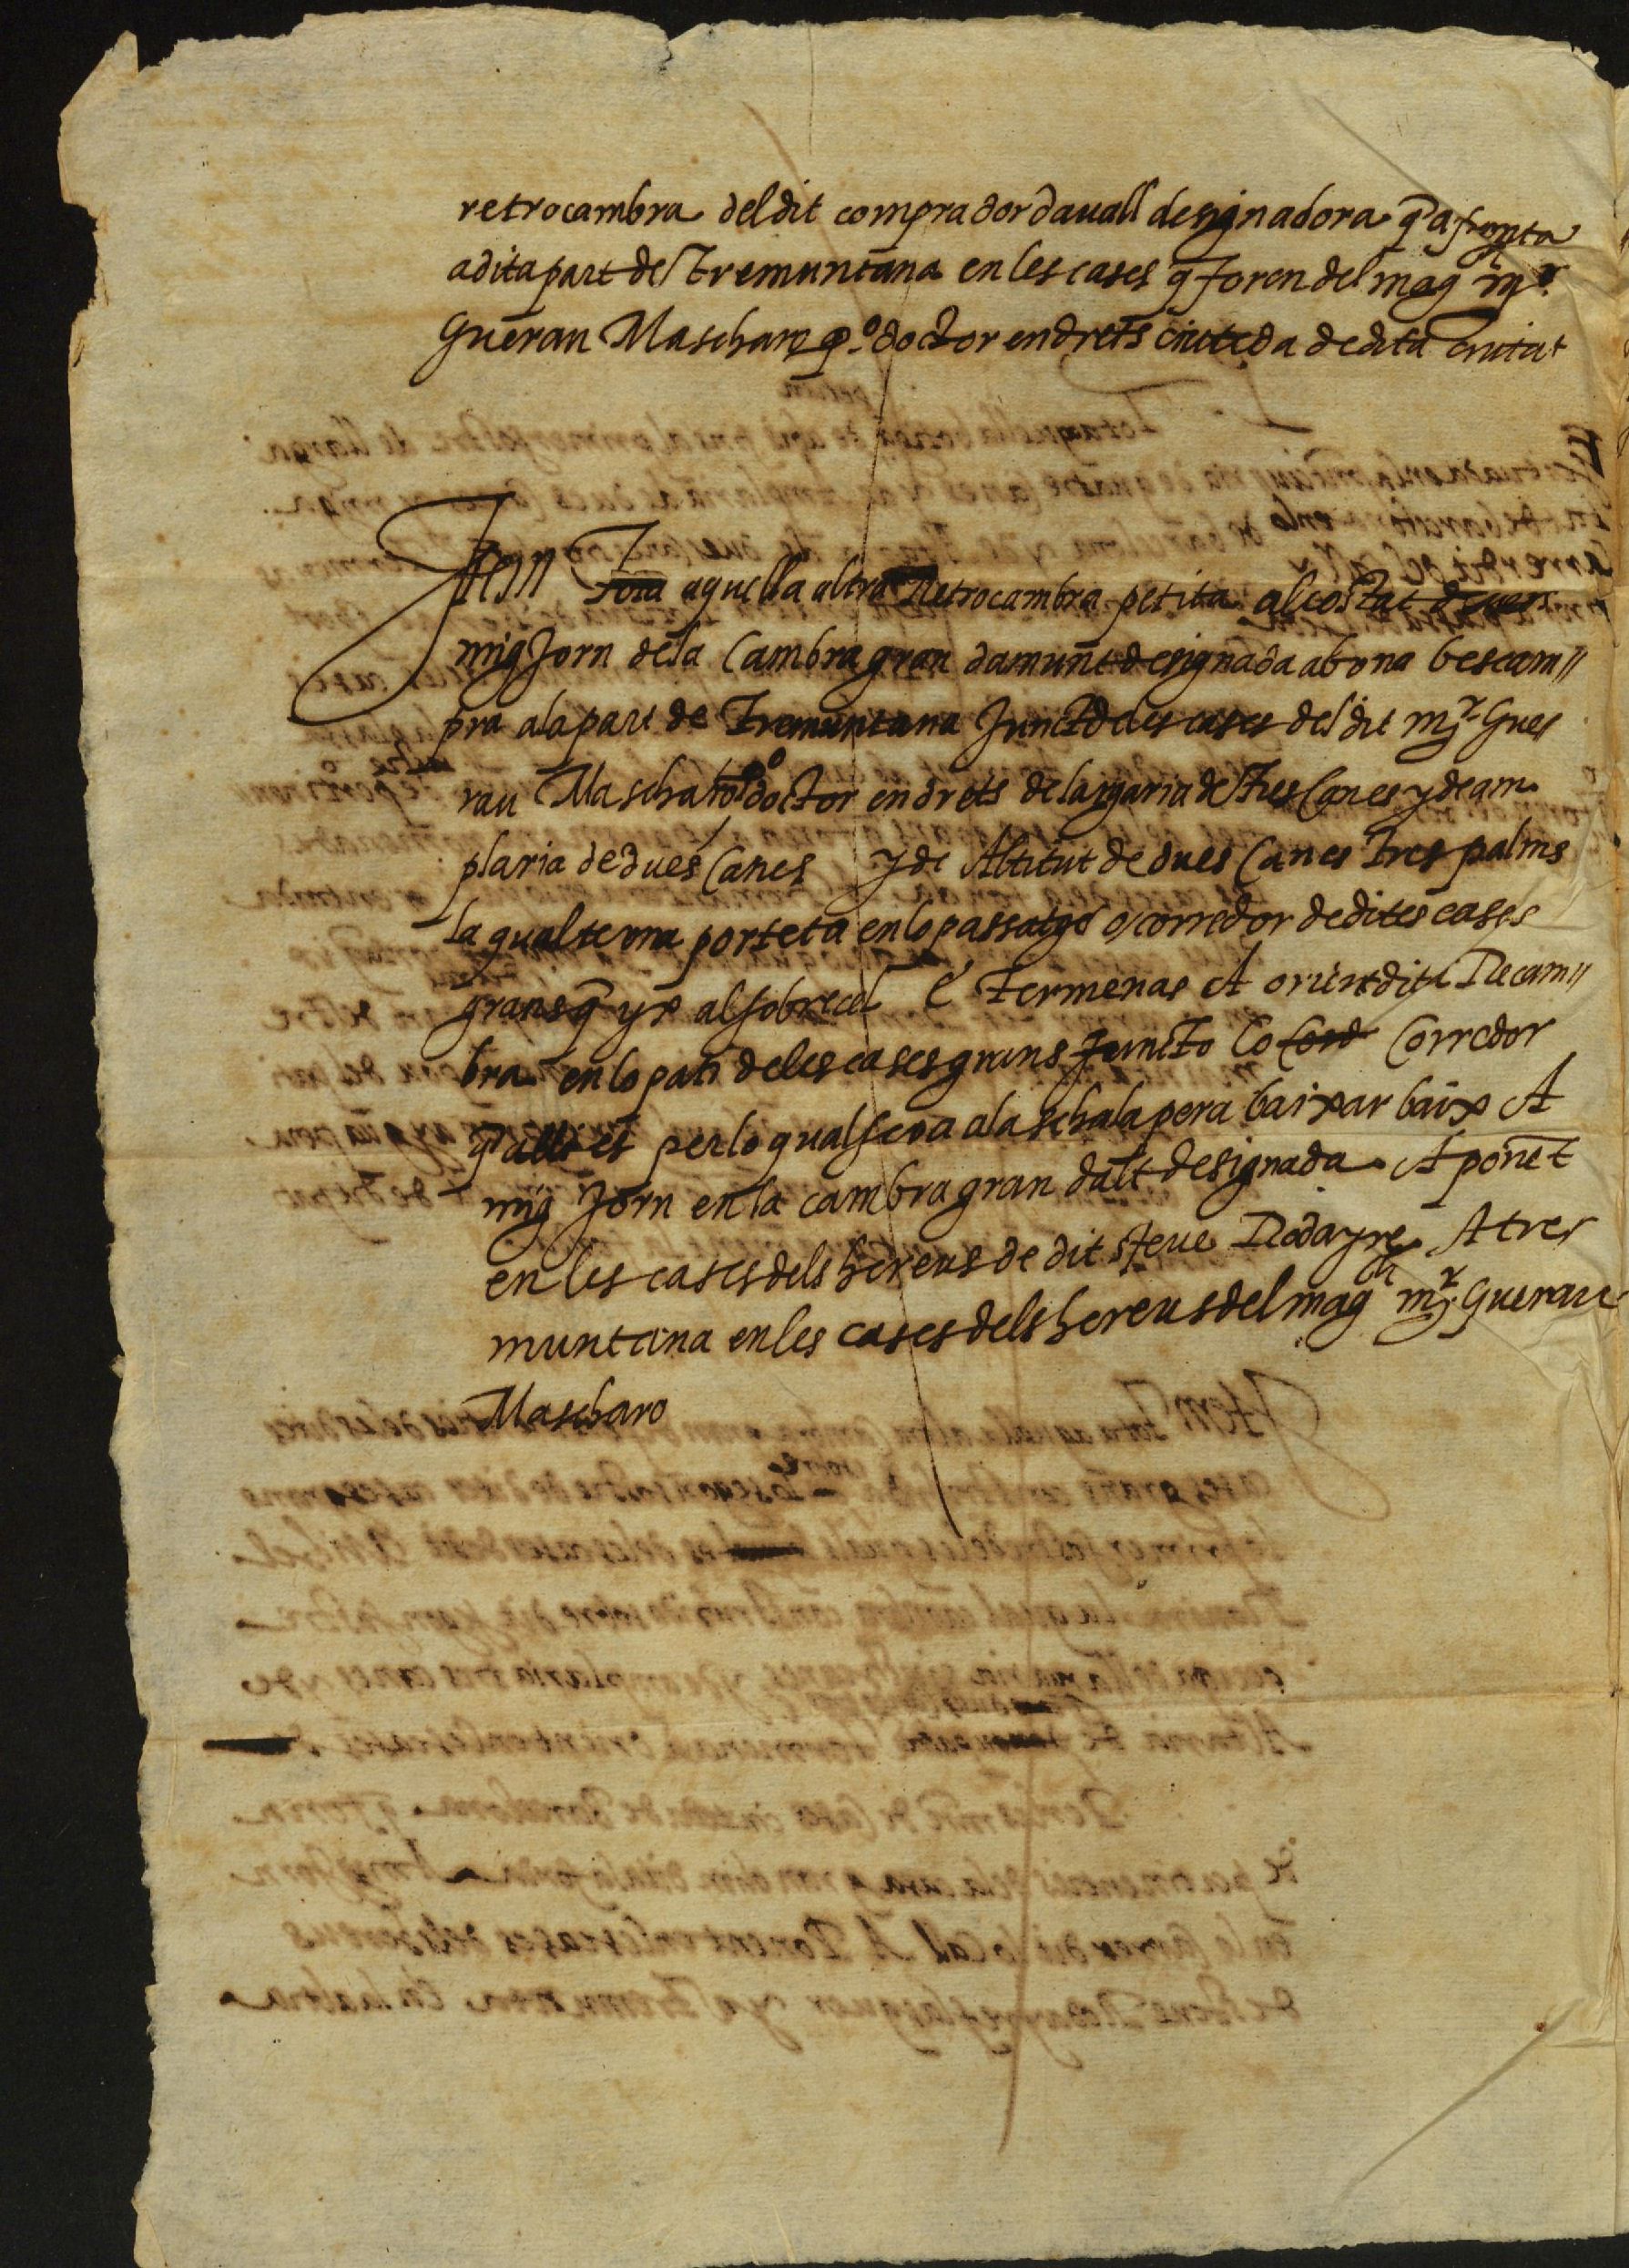 retrocambra del dit comprador dauall designadora q̄ afronta
a dita part de Tremuntana en les cases q̄ foren del mag mr.
Gueran Mascharo qº. doctor en drets ciutedа de dita Ciutat
Item Tota aquella altra Retrocambra petita al costat de uers
mig Jorn de la Cambra gran damunt designada ab una bescam//
pra a la part de Tremuntana Juncto de les cases del dit mr. Gue/
rau Mascharo qº doctor en drets de largaria de Tres Canes y de am
plaria de dues Canes y de Altitut de dues Canes Tres palms
la qual te una porteta en lo passatge o corredor de dites cases
grans q̄ yx al sobrecel E termenas A orient dita Recam//
bra en lo pati de les cases grans Juncto lo Cord Corredor
q̄ alli es per lo qual se va a la schala pera baixar baix A
mig Jorn en la cambra gran dalt designada A ponēt
en les cases dels hereus de dit steue Rodayre A tre/
muntana en les cases dels hereus del mag ch mr. Guerau
Mascharo